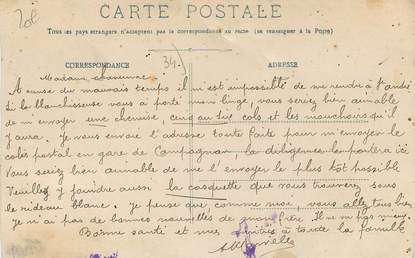 CARTE POSTALE
Tous les pays étrangers n'acceptent pas la correspondance au recto (se renseigner à la Poste)
CORRESPONDANCE
34
ADRESSE
Madame
A cause du mauvais temps il m'est impossible de me rendre à St André
Si la blanchisseuse vous a porté mon linge, vous seriez bien aimable
de m'envoyer une chemise, cinq ou six cols et les mouchoirs qu'il
y aura. Je vous envoie l'adresse toute faite pour m'envoyer le
colis postal en gare de Campagnan, la diligence le portera ici
Vous seriez bien aimable de me l'envoyer le plus tôt possible
Veuillez y joindre aussi la casquette que vous trouverez sous
le rideau blanc. Je pense que comme moi, vous allez tous bien
Je n'ai pas de bonnes nouvelles de mon frère. Il ne va pas mieux.
Bonne santé et mes amitiés à toute la famille